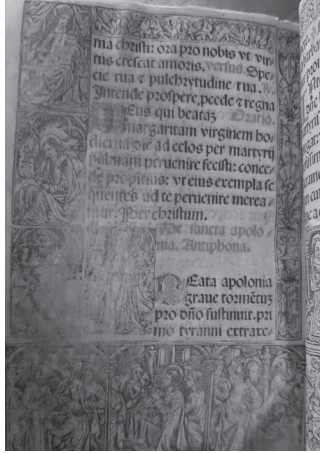 ma christi: ora pro nobis vt vir⸗
tus crescat amoris. versus. Spe⸗
cie tua ⁊ pulchrytudine tua. ℟.
Intende prospere, pcede ⁊ regna
Eus qui beatã Oratio.
margaritam virginem ho⸗
dierna die ad celos per martyrij
palmam peruenire fecisti: conce⸗
de propitius: vt eius exempla se
quentes ad te peruenire merea⸗
mur. Per christum.
De sancta apolo⸗
nia. Antiphona.
BEata apolonia
graue tormẽtuʒ
pro dño sustinuit. pri
mo tyranni extraxe⸗